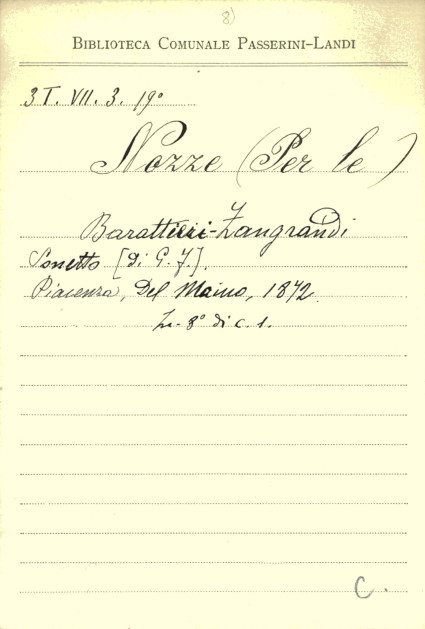 8)
BIBLIOTECA COMUNALE PASSERINI-LANDI
3T. VII. 3. 19°
Nozze (Per le)
Barattieri-Zangrandi
Sonetto [di G. J.].
Piacenza, Del Maino, 1872.
In-8° di c. 1.
C.